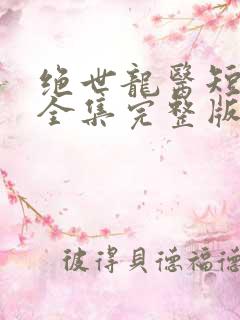 绝世龍醫短
全集完整版
彼得貝德福德